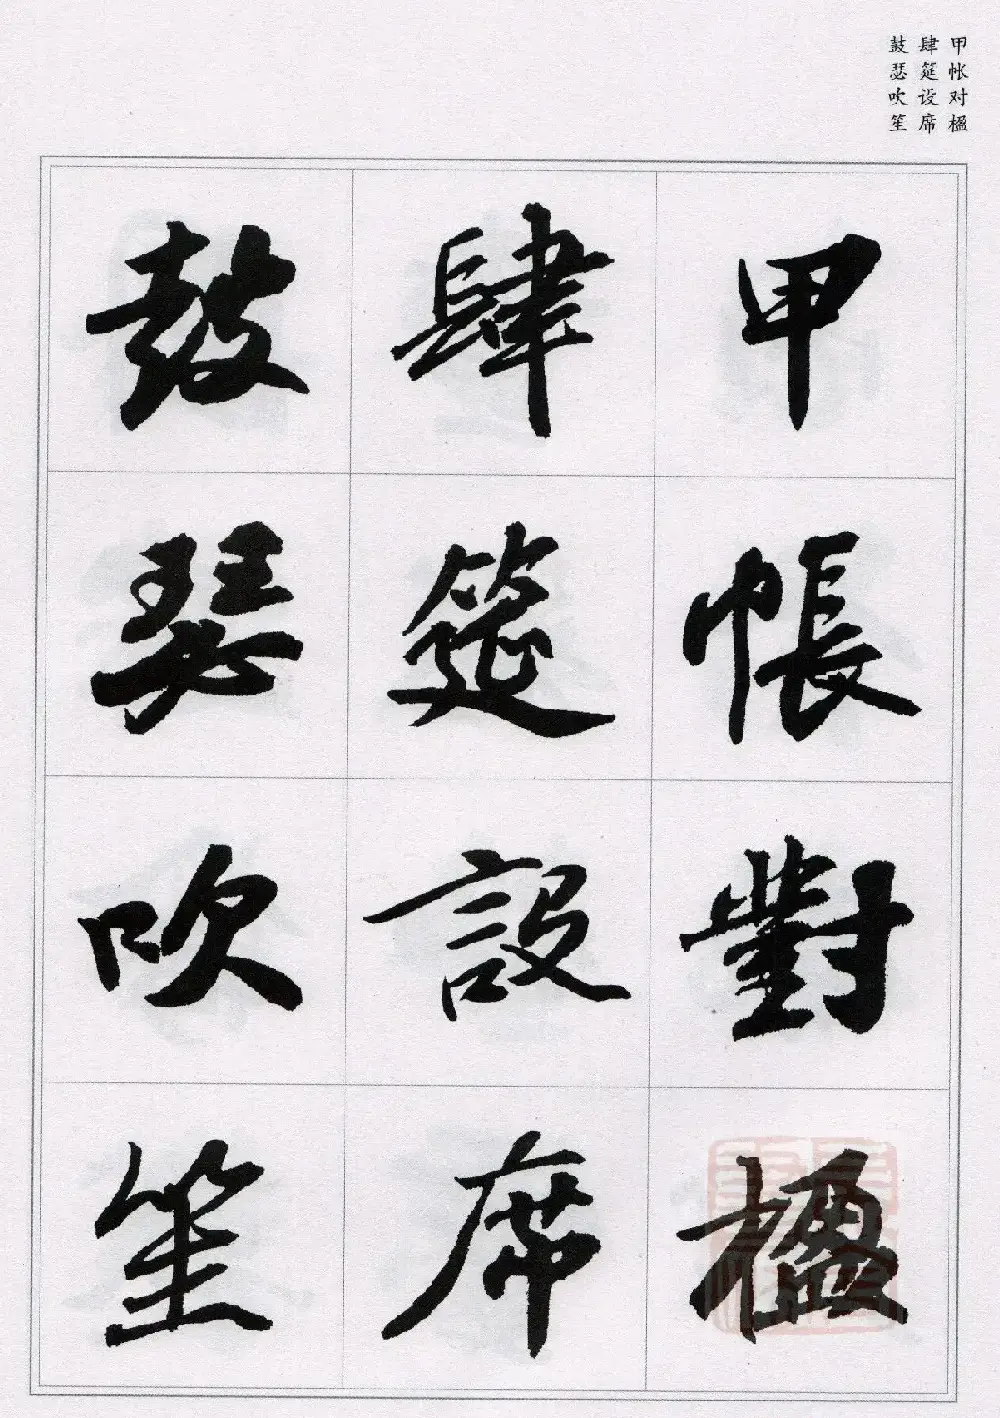 甲帐对楹
肆筵设席
鼓瑟吹笙
甲帳對楹
肆筵設席
鼓瑟吹笙